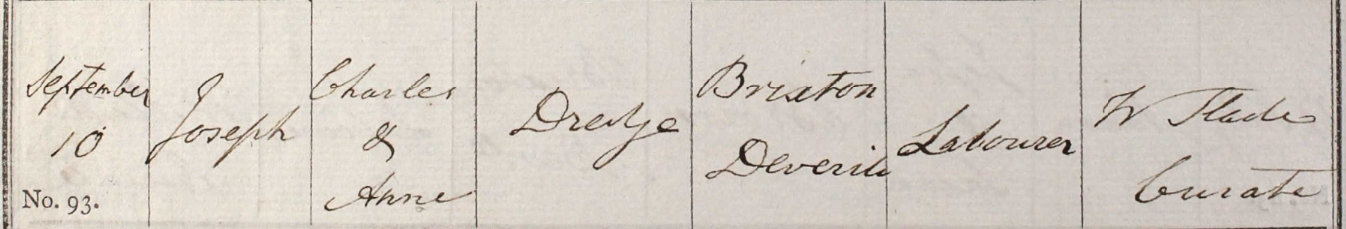 September
10
No. 93.
Joseph
Charles
&
Anne
Dredge
Brixton
Deverill
Labourer
W Slade
Curate